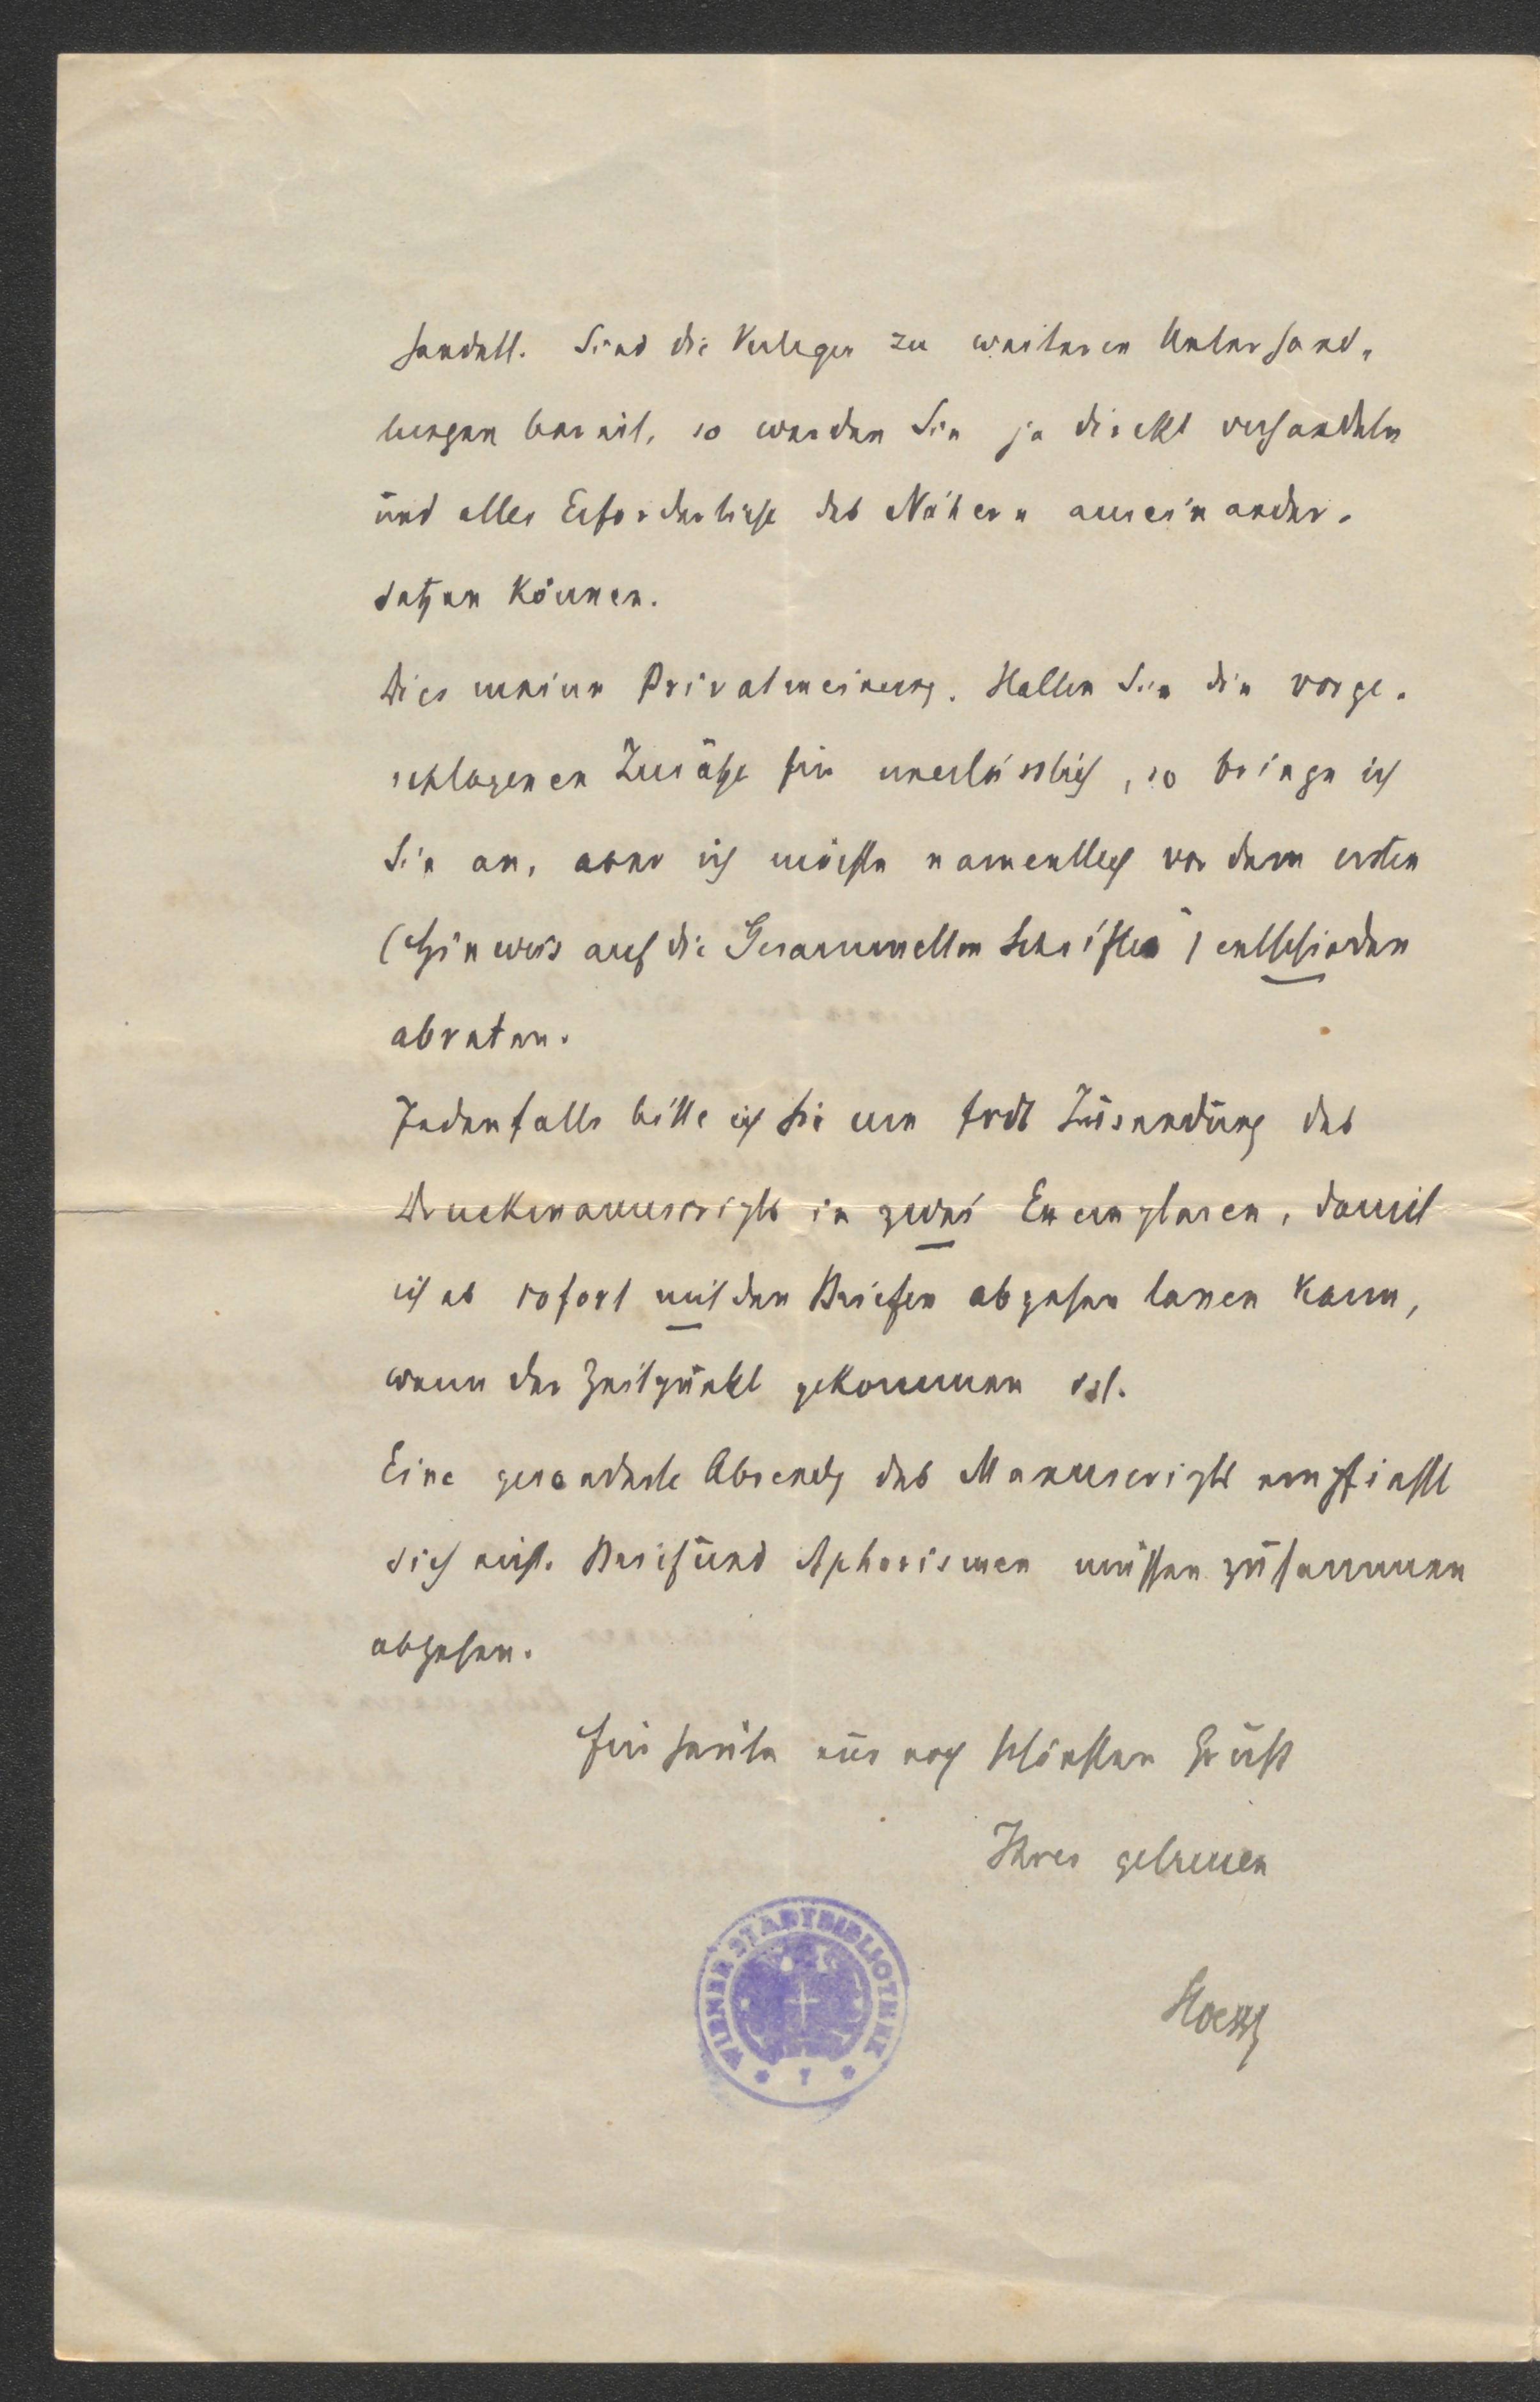 handelt. Sind die Verleger zu weiteren Unterhand-
lungen bereit, so werden Sie ja direkt verhandeln
und alles Erforderliche des Nähern auseinander-
setzen können.
Dies meine Privatmeinung. Halten Sie die vorge-
schlagenen Zusätze für unerlässlich, so bringe ich
Sie an, aber ich möchte namentlich vor dem ersten
(Hinweis auf die Gesammelten Schriften) entschieden
abraten.
Jedenfalls bitte ich Sie um frdl Zusendung des
Druckmanuscripts in zwei Exemplaren, damit
ich es sofort mit den Briefen abgehen lassen kann,
wenn der Zeitpunkt gekommen ist.
Eine gesonderte Absendg des Manuscripts empfiehlt
sich nicht. Brief und Aphorismen müssen zusammen
abgehen.
Für heute nur noch schönsten Gruß
Ihres getreuen
WIENER STADTBIBLIOTHEK